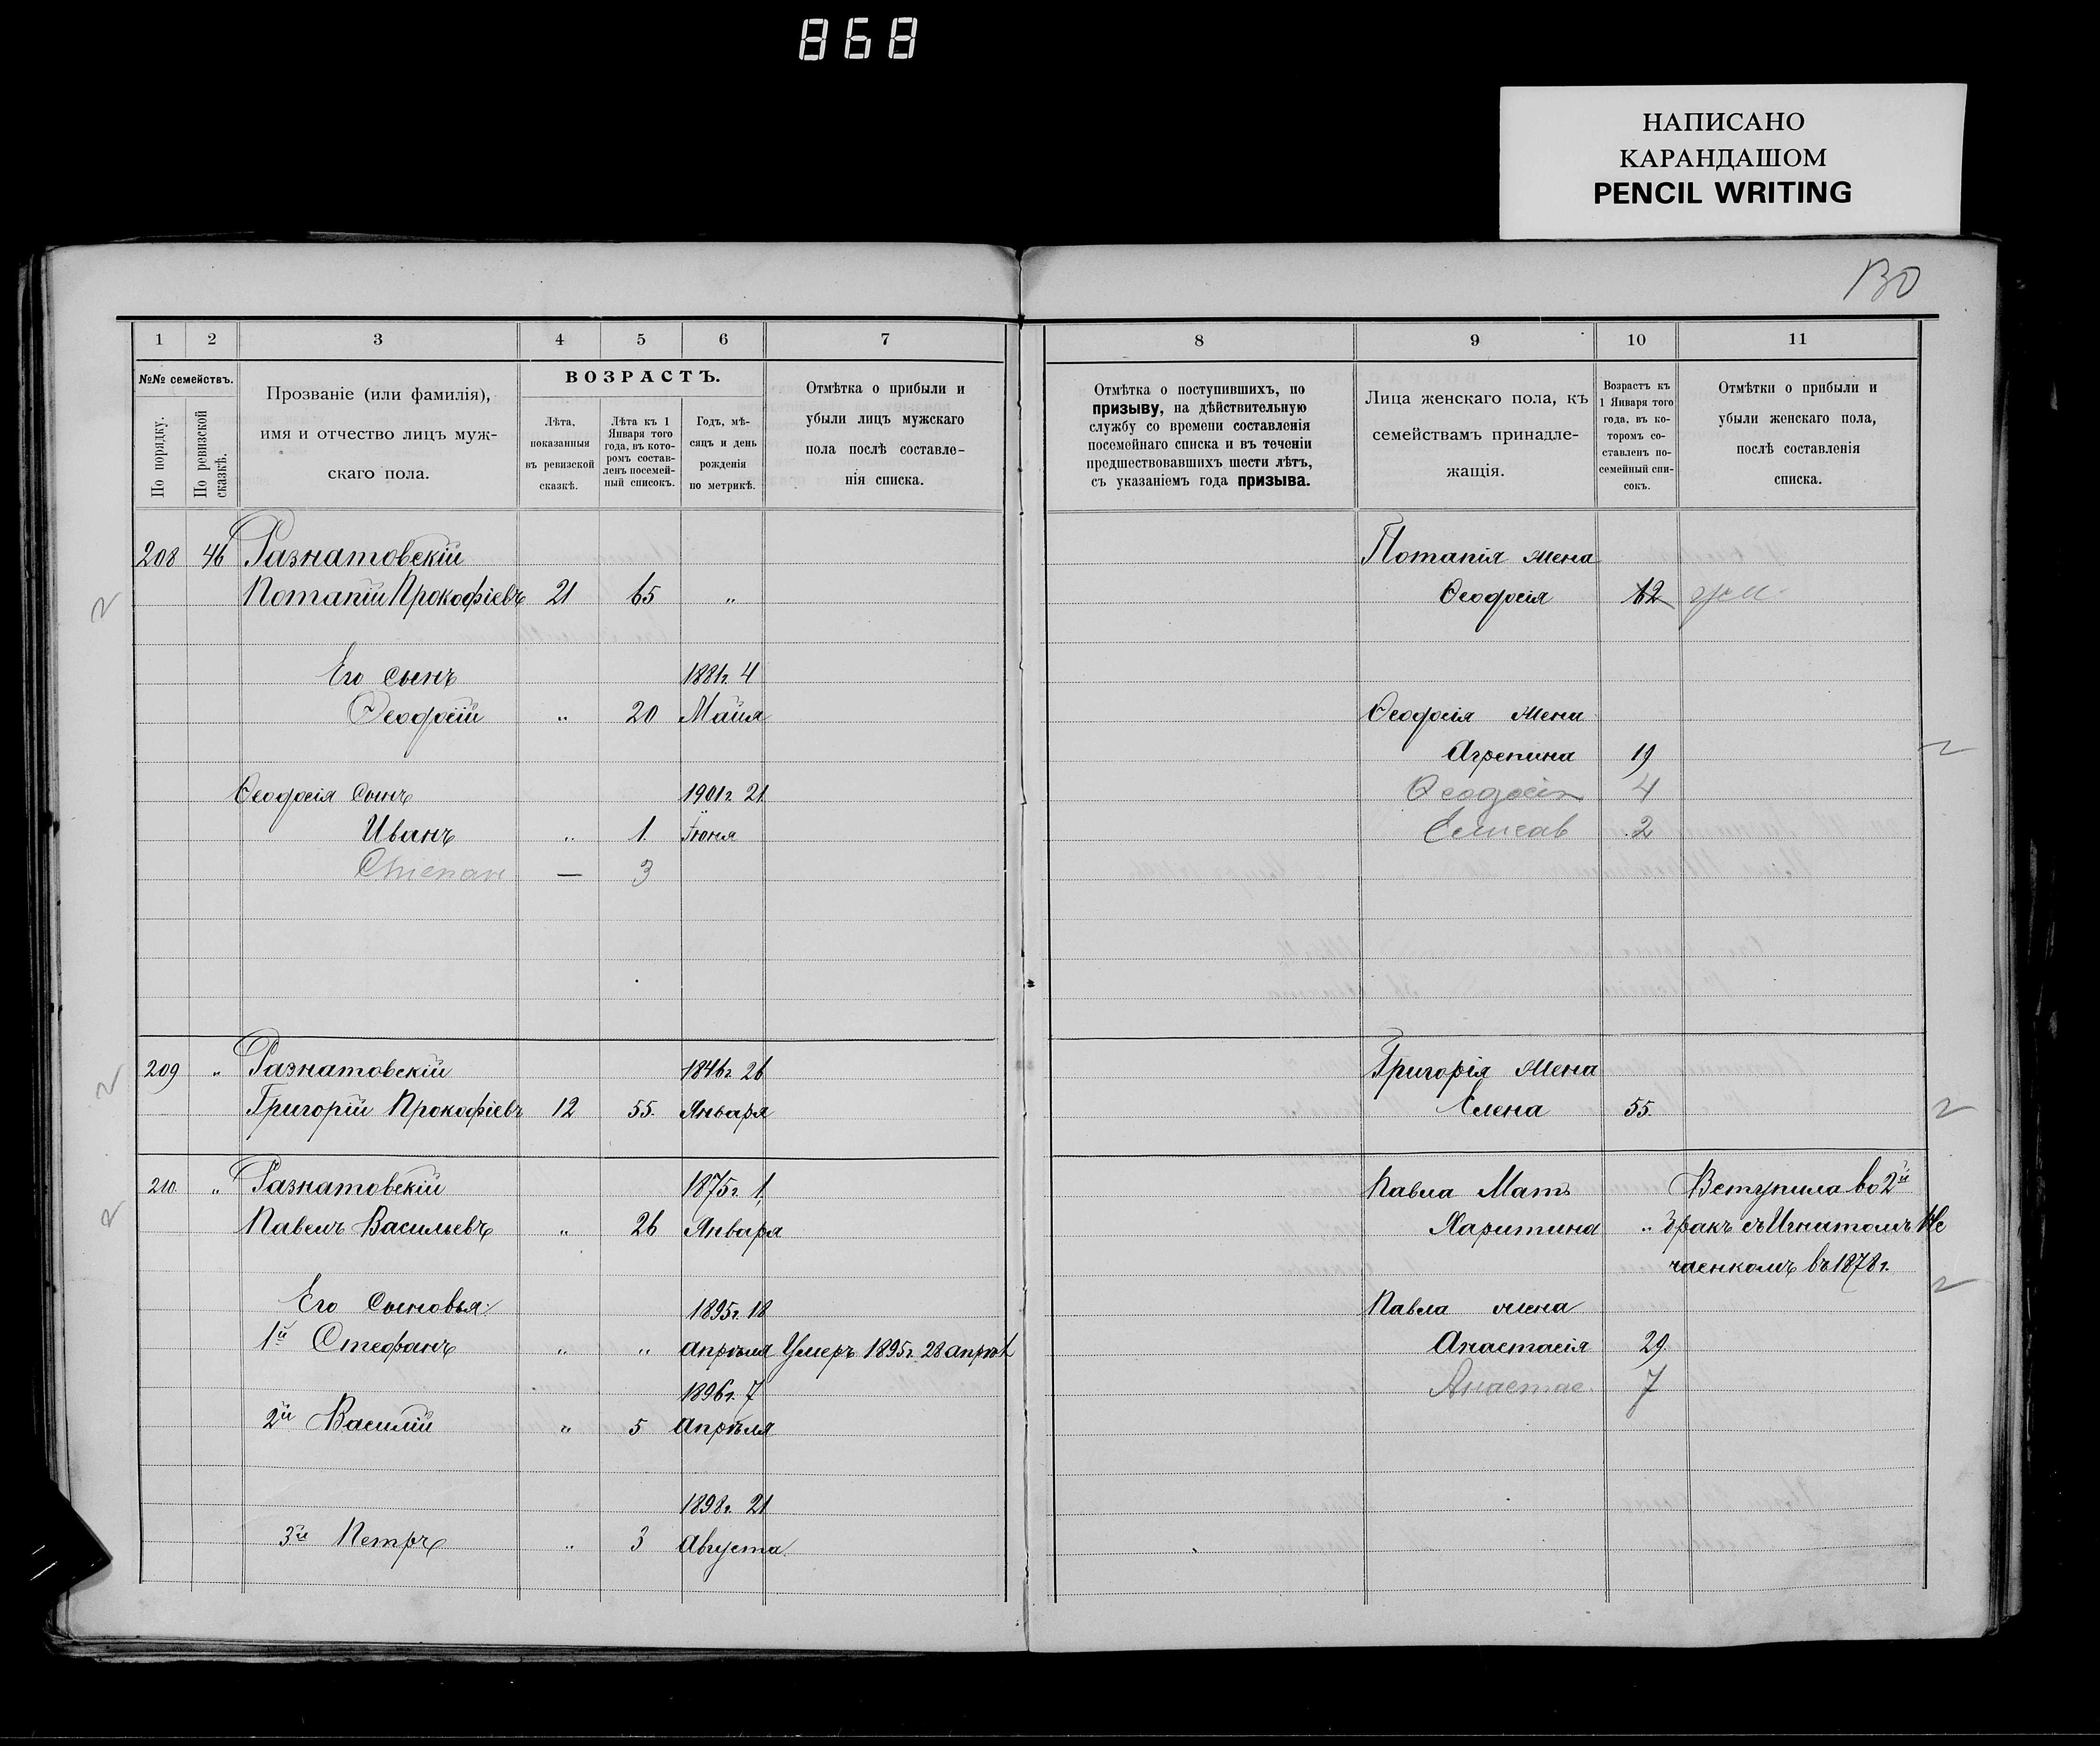 868
НАПИСАНО
КАРАНДАШОМ
PENCIL WRITING
130
1 2 3 4 5 6 7
№№ семействъ.
По порядку.
По ревизской сказкѣ.
Прозваніе (или фамилія),
имя и отчество лицъ муж-
скаго пола.
ВОЗРАСТЪ.
Лѣта,
показанныя
въ ревизской
сказкѣ.
Лѣта къ 1
Января того
года, въ кото-
ромъ состав-
ленъ посемей-
ный списокъ.
Годъ, мѣ-
сяцъ и день
рожденія
по метрикѣ.
Отмѣтка о прибыли и
убыли лицъ мужскаго
пола послѣ составле-
нія списка.
208 46 Разнатовскій
Потапій Прокофіевъ 21 65 „
Его сынъ 1881г. 4
Ѳеодосій „ 20 Майя
Ѳеодосія сынъ 1901г. 21
Иванъ „ 1 Іюня
Степан — 3
209 „ Разнатовскій 1846г. 26
Григорій Прокофіевъ 12 55. Января
210 „ Разнатовскій 1875г. 1
Павелъ Васильевъ „ 26 Января
Его сыновья: 1895г. 18
1й Стефанъ „ „ Апрѣля Умеръ 1895г. 28 апрѣл
1896г. 7
2й Василій „ 5 Апрѣля
1898г. 21
3й Петръ „ 3 Августа
8 9 10 11
Отмѣтка о поступившихъ, по
призыву, на дѣйствительную
службу со времени составленія
посемейнаго списка и въ теченіи
предшествовавшихъ шести лѣтъ,
съ указаніемъ года призыва.
Лица женскаго пола, къ
семействамъ принадле-
жащія.
Возрастъ къ
1 Января того
года, въ ко-
торомъ со-
ставленъ по-
семейный спи-
сокъ.
Отмѣтки о прибыли и
убыли женскаго пола,
послѣ составленія
списка.
Потапія жена
Ѳеодосія 62 ум.
Ѳеодосія жена
Агрепина 19
Ѳеодосія 4
Елисав 2
Григорія жена
Елена 55.
Павла Мать Вступила во 2й
Харитина „ бракъ съ Игнатомъ Не
чаенкомъ въ 1878г.
Павла жена
Анастасія 29.
Анастас. 7